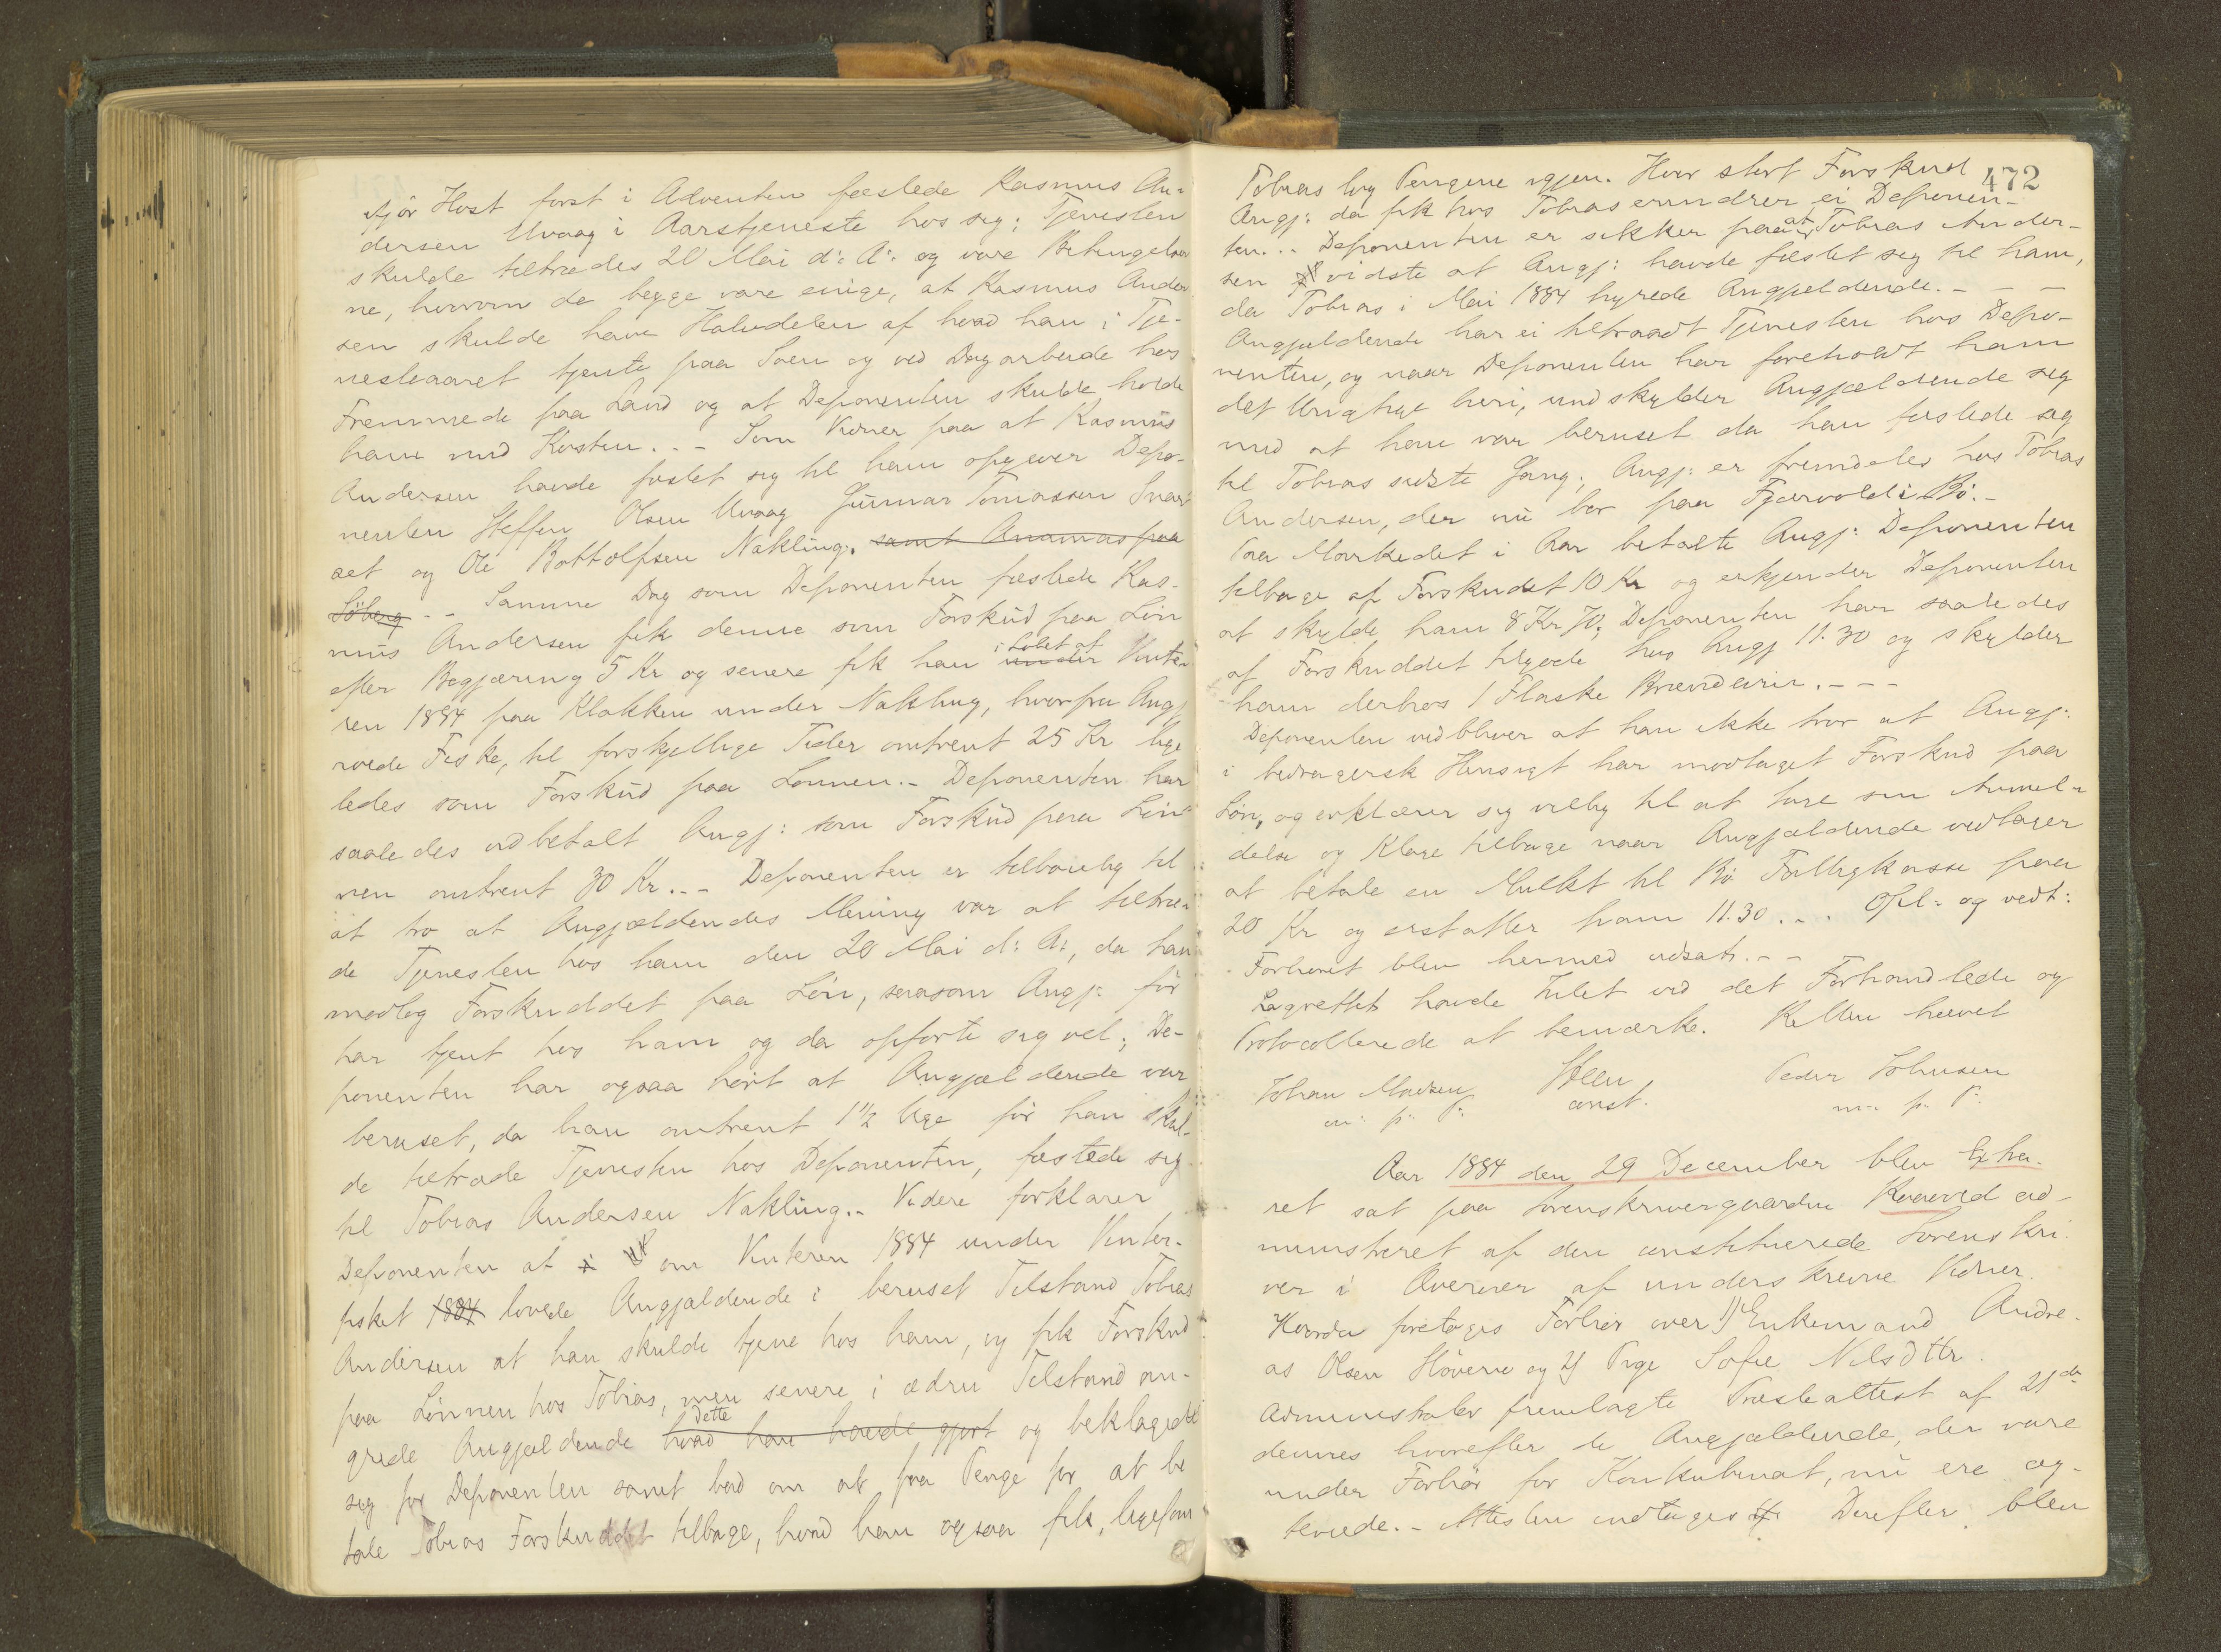 ifjör Höst först i Adventen fæstede Rasmus An-
dersen Uvaag i Aarstjeneste hos sig; Tjenesten
skulde tiltrædes 20 Mai d: A: og vare Betingelser
ne, hvorom de begge vare enige, at Rasmus Ander
sen skulde have Halvdelen af hvad han i Tje-
nesteaaret tjente paa Söen og ved Dagarbeide hos
Fremmede paa Land og at Deponenten skulde holde
ham med Kosten. - - Som Vidner paa at Rasmus
Andersen havde fæstet sig til ham opgiver Depo-
nenten Steffen Olsen Uvaag Gunnar Tomassen
set og Ole Bottolfsen Nakling. samt Ananias paa
Söberg - - Samme Dag som Deponenten fæstede Ras-
mus Andersen fik denne som Forskud paa Lön
efter Begjæring 5 Kr og senere fik han i Löbet af under Vinte-
ren 1884 paa Klakken under Nakling, hvorfra Angj
roede Fiske, til forskjellige Tider omtrent 25 Kr lige
ledes som Forskud paa Lönnen. - Deponenten har
saaledes udbetalt Angj: som Forskud paa Lön-
nen omtrent 30 Kr. - - Deponenten er tilböielig til
at tro at Angjældendes Mening var at tiltræ-
de Tjenesten hos ham den 20 Mai d: A:, da han
modtog Forskuddet paa Lön, saasom Angj: för
har tjent hos ham og da opförte sig vel; De-
ponenten har ogsaa hört at Angjældende var
beruset, da han omtrent 1 1/2 Uge för han skul-
de tiltræde Tjenesten hos Deponenten, fæstede sig
til Tobias Andersen Nakling. - Videre forklarer
Deponenten at i om Vinteren 1884 under Vinter-
fisket 1884 lovede Angjældende i beruset Tilstand Tobias
Andersen at han skulde tjene hos ham, og fik Forskud
paa Lönnen hos Tobias, men senere i ædru Tilstand an-
grede Angjældende dette hvad han havde gjort og beklagede
sig for Deponenten samt bad om at faa Penge for at be
tale Tobias Forskuddet tilbage, hvad han ogsaa fik, ligesom
472
Tobias tog Pengene igjen. Hvor stort Forskud
Angj: da fik hos Tobias erindrer ei Deponen-
ten. - - Deponenten er sikker paa at Tobias Ander-
sen vidste at Angj: havde fæstet sig til ham,
da Tobias i Mai 1884 hyrede Angjældende. - - -
Angjældende har ei tiltraadt Tjenesten hos Depo-
nenten, og naar Deponenten har foreholdt ham
det Urigtige heri, undskylder Angjældende sig
med at han var beruset da han fæstede sig
til Tobias sidste Gang; Angj: er fremdeles hos Tobias
Andersen, der nu bor paa Fjærvold i Bö. -
Paa Markedet i Aar betalte Angj: Deponenten
tilbage af Forskudet 10 Kr og erkjender Deponenten
at skylde ham 8 Kr 70; Deponenten har saaledes
af Forskuddet tilgode hos Angj 11.30 og skylder
ham derhos 1 Flaske Brændeviin. - - -
Deponenten vedbliver at han ikke tror at Angj:
i bedragersk Hensigt har modtaget Forskud paa
Lön, og erklærer sig villig til at tage sin Anmel-
delse og Klage tilbage naar Angjældende vedtager
at betale en Mulkt til Bö Fattigkasse paa
20 Kr og erstatter ham 11.30. - . Opl: og vedt:
Forhöret blev hermed udsat. - -
Lagrettet havde Intet ved det Forhandlede og
Protocollerede at bemærke. Retten hævet
Johan Madsen
m: p: P:
const.
Peder Johnsen
m: p: P:
Aar 1884 den 29 December blev Extra-
ret sat paa Sorenskrivergaarden Rævved ad-
ministreret af den constituerede Sorenskri-
ver i Overvær af underskrevne Vidner.
Hvorda foretages Forhör over 1) Enkemand Andre-
as Olsen Hövene og 2) Pige Sofie Nilsdttr.
Administrator fremlagte Præsteattest af 21de
dennes hvorefter de Angjældende, der vare
under Forhör for Konkubinat, nu ere ægt-
teviede. - Attesten indtages Derefter blev